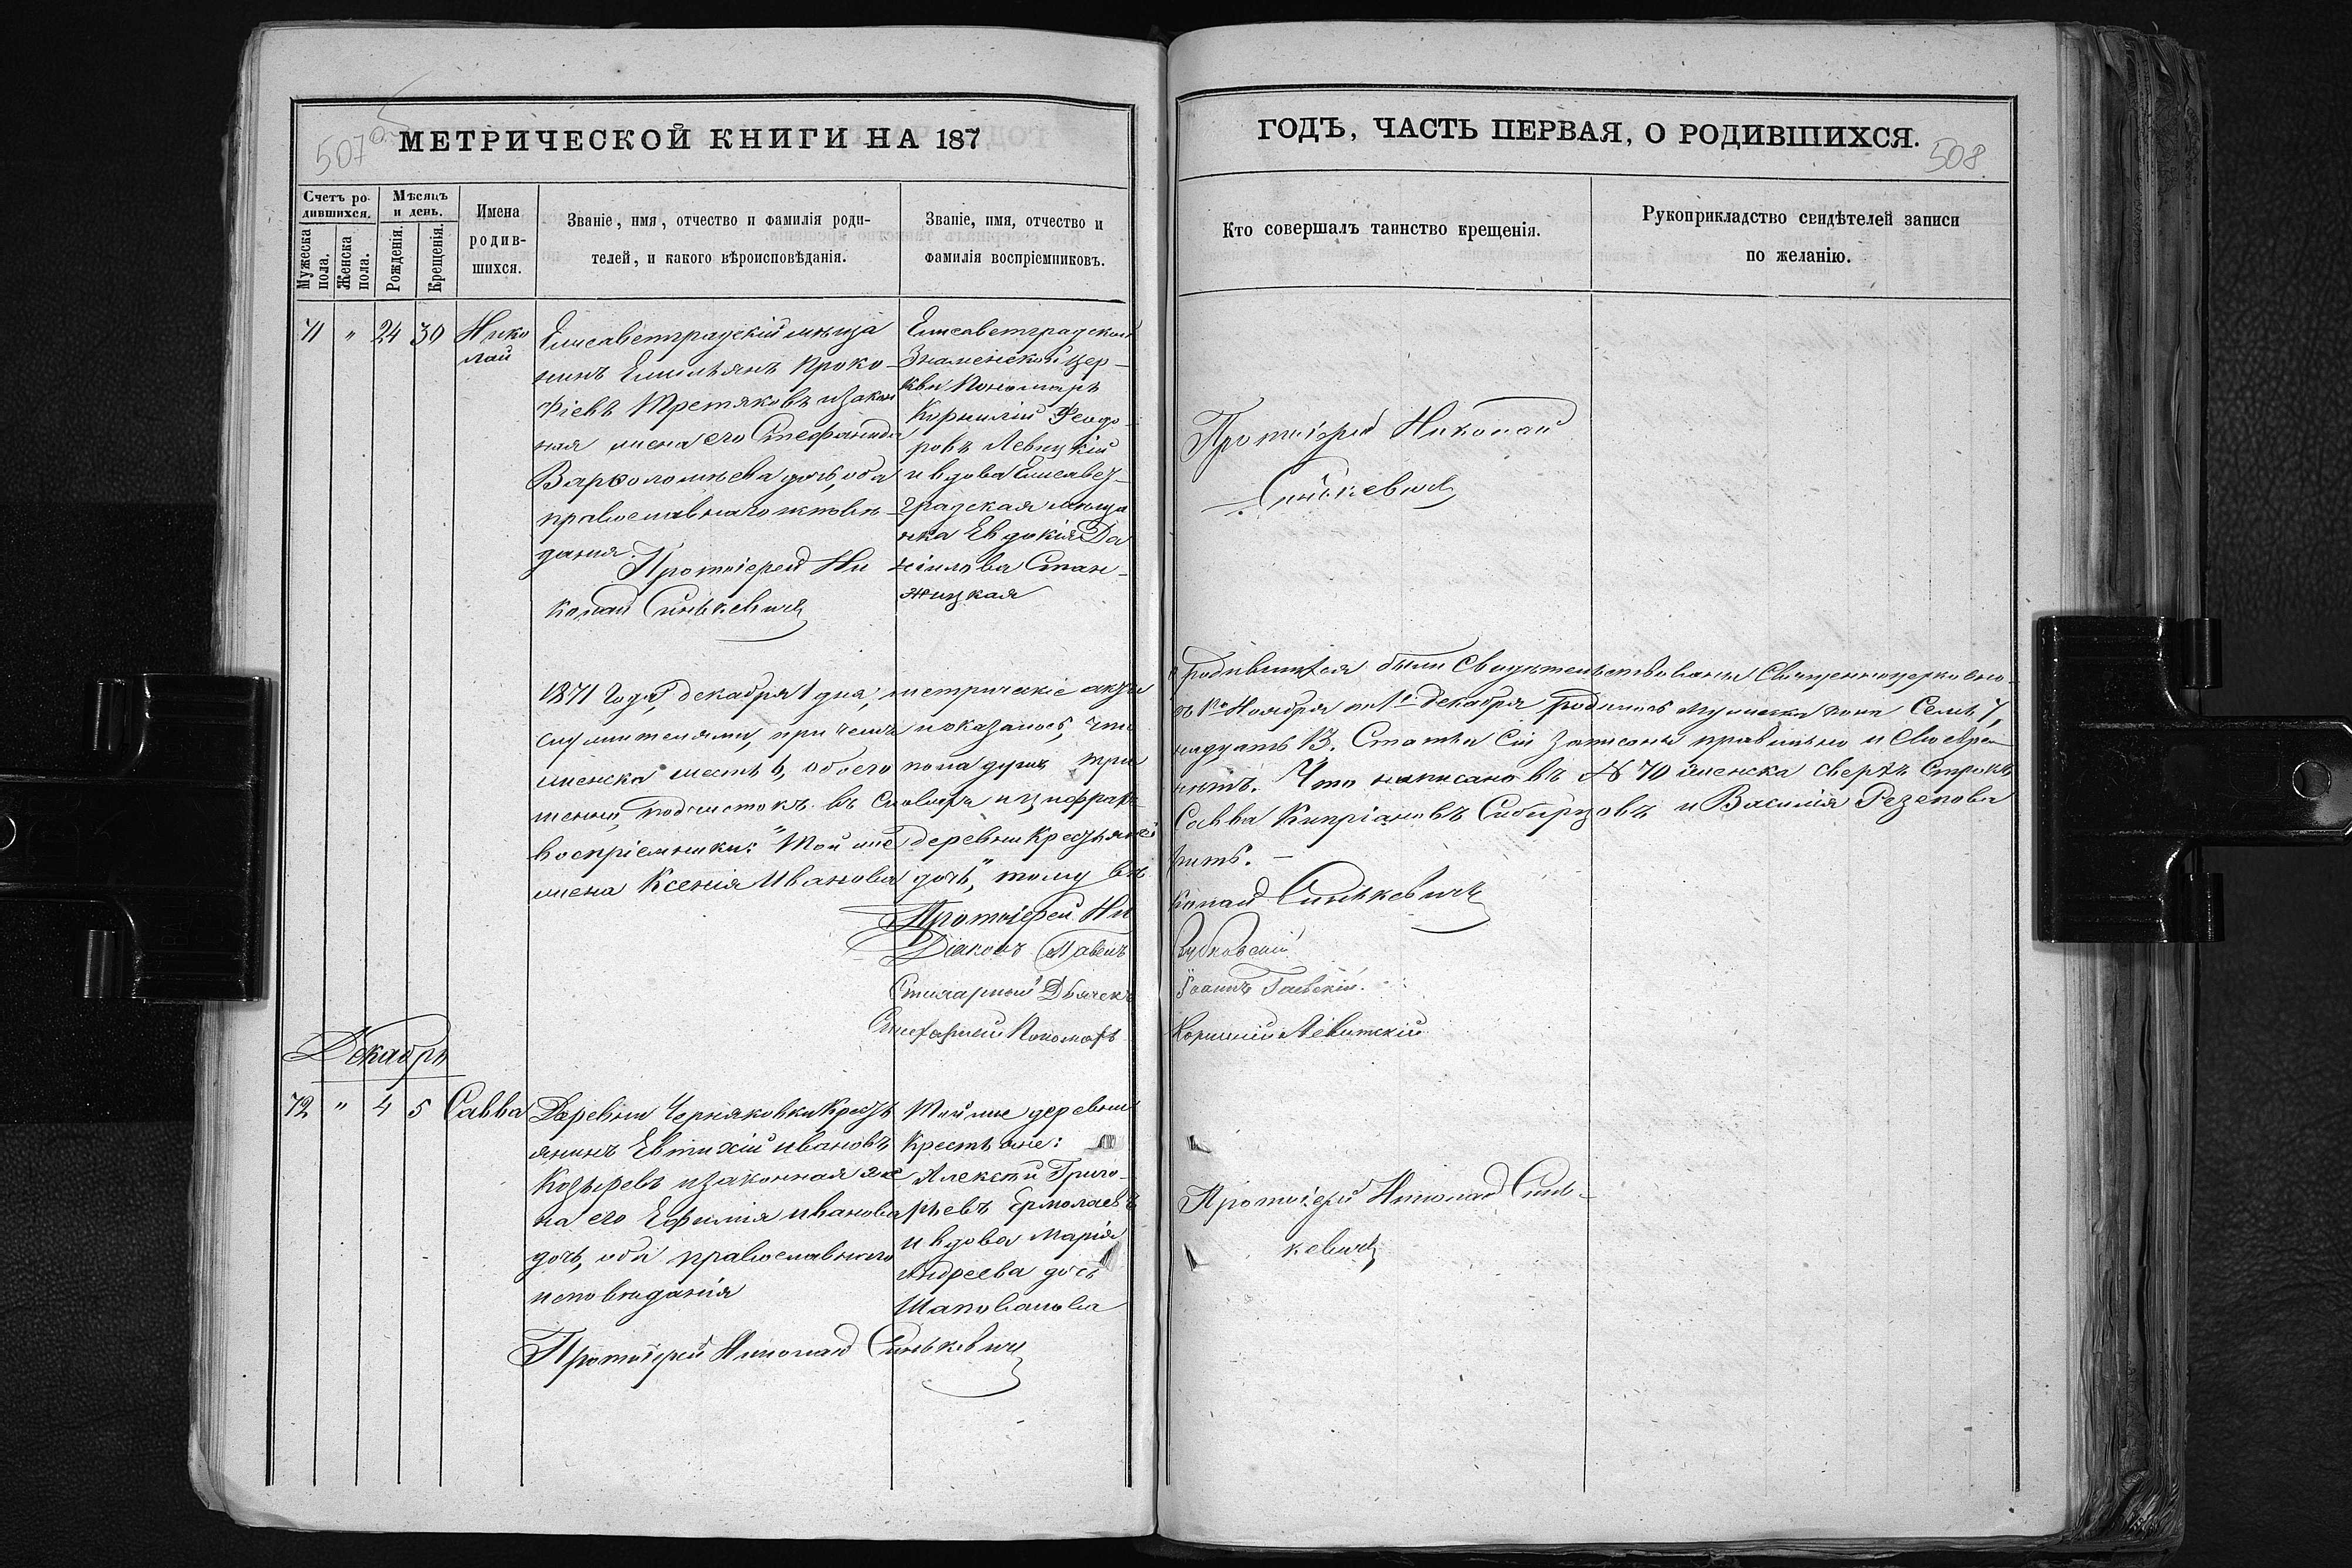 507 об
МЕТРИЧЕСКОЙ КНИГИ НА 187
Счетъ ро-
дившихся.
Мѣсяцъ
и день.
Мужеска
пола.
Женска
пола.
Рожденія.
Крещенія.
Имена
родив-
шихся.
Званіе, имя, отчество и фамилія роди-
телей, и какого вѣроисповѣданія.
Званіе, имя, отчество и
фамилія воспріемниковъ.
71 " 24 30 Нико
лай
Елисаветградскій мѣща
нинъ Емильянъ Проко-
фіевъ Третяковъ и закон
ная жена его Стефанида
Варѳоломѣева дочь, оба
православнаго исповѣ-
данія.
Протоіерей Ни
колай Синькевичъ
Елисаветградской
Знаменской цер-
кви Пономарь
Корнилій Феодо-
ровъ Левицкій
и вдова Елисавет-
градская мѣща
нка Евдокія Да
ніилова Стан-
жицкая
1871 года, декабря 1 дня, метрическіе акты
служителями, при чемъ показалось, что
женска шесть 6, обоего пола душъ три
воспріемники: "Той же деревни Крестьяне
жена Ксенія Иванова дочь," тому
Протоіерей Ни
Діаконъ Павелъ
Стихарный Дьячекъ
Стихарный Пономарь
Декабрь
72 " 4 5 Савва
Деревни Черняковки Кресть
янинъ Евтихій Ивановъ
Козыревъ и законная же
на его Ефимія Иванова
дочь, оба православнаго
исповѣданія
Протоіерей Николай Синькевичъ
Той же деревни
Крестьяне:
Алексѣй Григо-
рьевъ Ермолаевъ
и вдова Марія
Андреева дочь
Шаповалова
ГОДЪ, ЧАСТЬ ПЕРВАЯ, О РОДИВШИХСЯ.
508
Кто совершалъ таинство крещенія.
Рукоприкладство свидѣтелей записи
по желанію.
Протоіерей Николай
Синькевичъ
о родившихся были свидѣтельствованы Священноцерковно-
съ 1го Ноября по 1е Декабря родилось мужеска пола семь 7,
надцать 13. Статьи сіи записаны правильно и своевре
Что написано въ № 70 женска сверхъ строкъ
Савва Кипріановъ Сибирцовъ и Василія Резепова
рить. —
колай Синькевичъ
Зубковскій
Іоаннъ Гаевскій.
Корнилій Левитскій
Протоіерей Николай Синь-
кевичъ